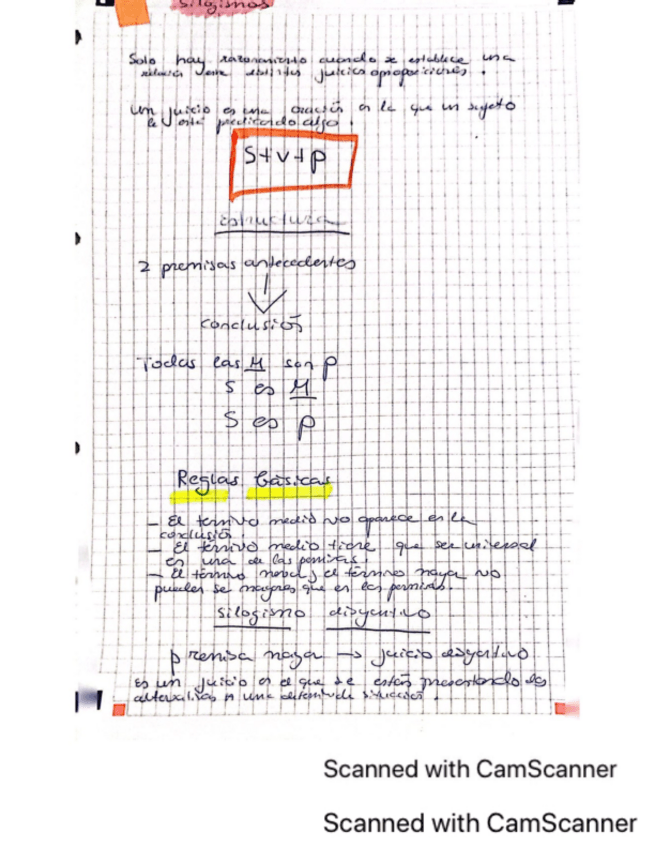 Silogismos
Solo hay razonamiento cuando se establece una
relación entre distintos juicios o proposiciones.
Un juicio es una oración en la que un sujeto
le está predicando algo.
S+v+p
estructura
2 premisas antecedentes
conclusión
Todas las M son p
S es M
S es p
Reglas básicas
- El termino medio no aparece en la
conclusión.
- El término medio tiene que ser universal
en una de las premisas.
- El término menor y el término mayor no
pueden ser mayores que en las premisas.
silogismo disyuntivo
premisa mayor → juicio disyuntivo
es un juicio en el que se están presentando las
alternativas a una determinada situación.
Scanned with CamScanner
Scanned with CamScanner